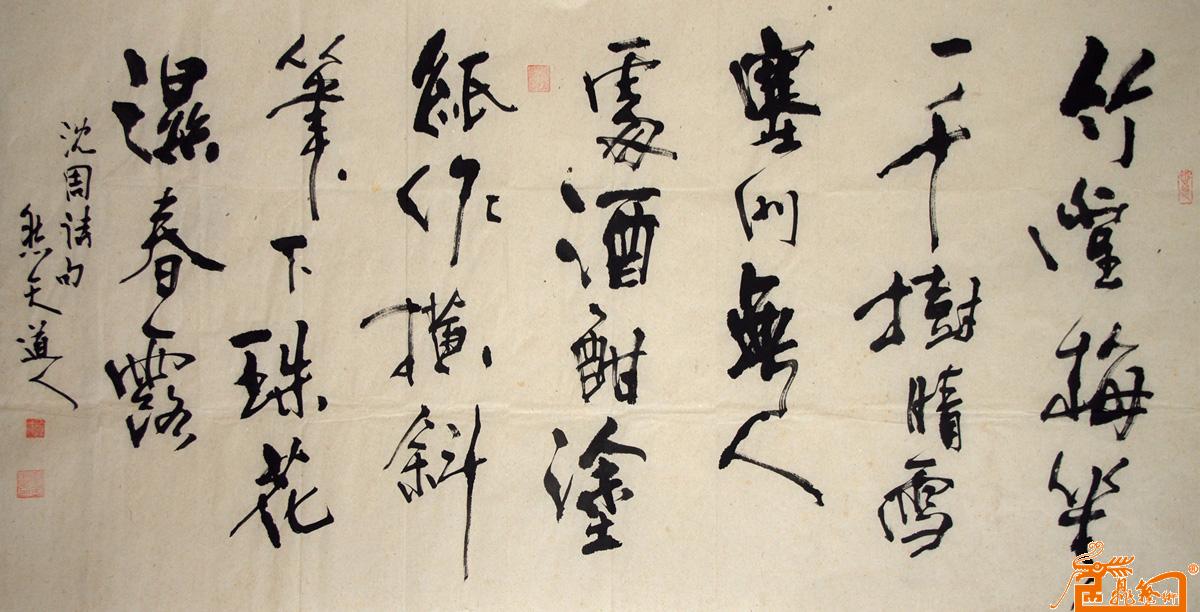 竹堂梅華
一千樹晴雪
塞門無人
處酒酣塗
紙作横斜
筆下珠花
濕春露
沈周詩句
天道人